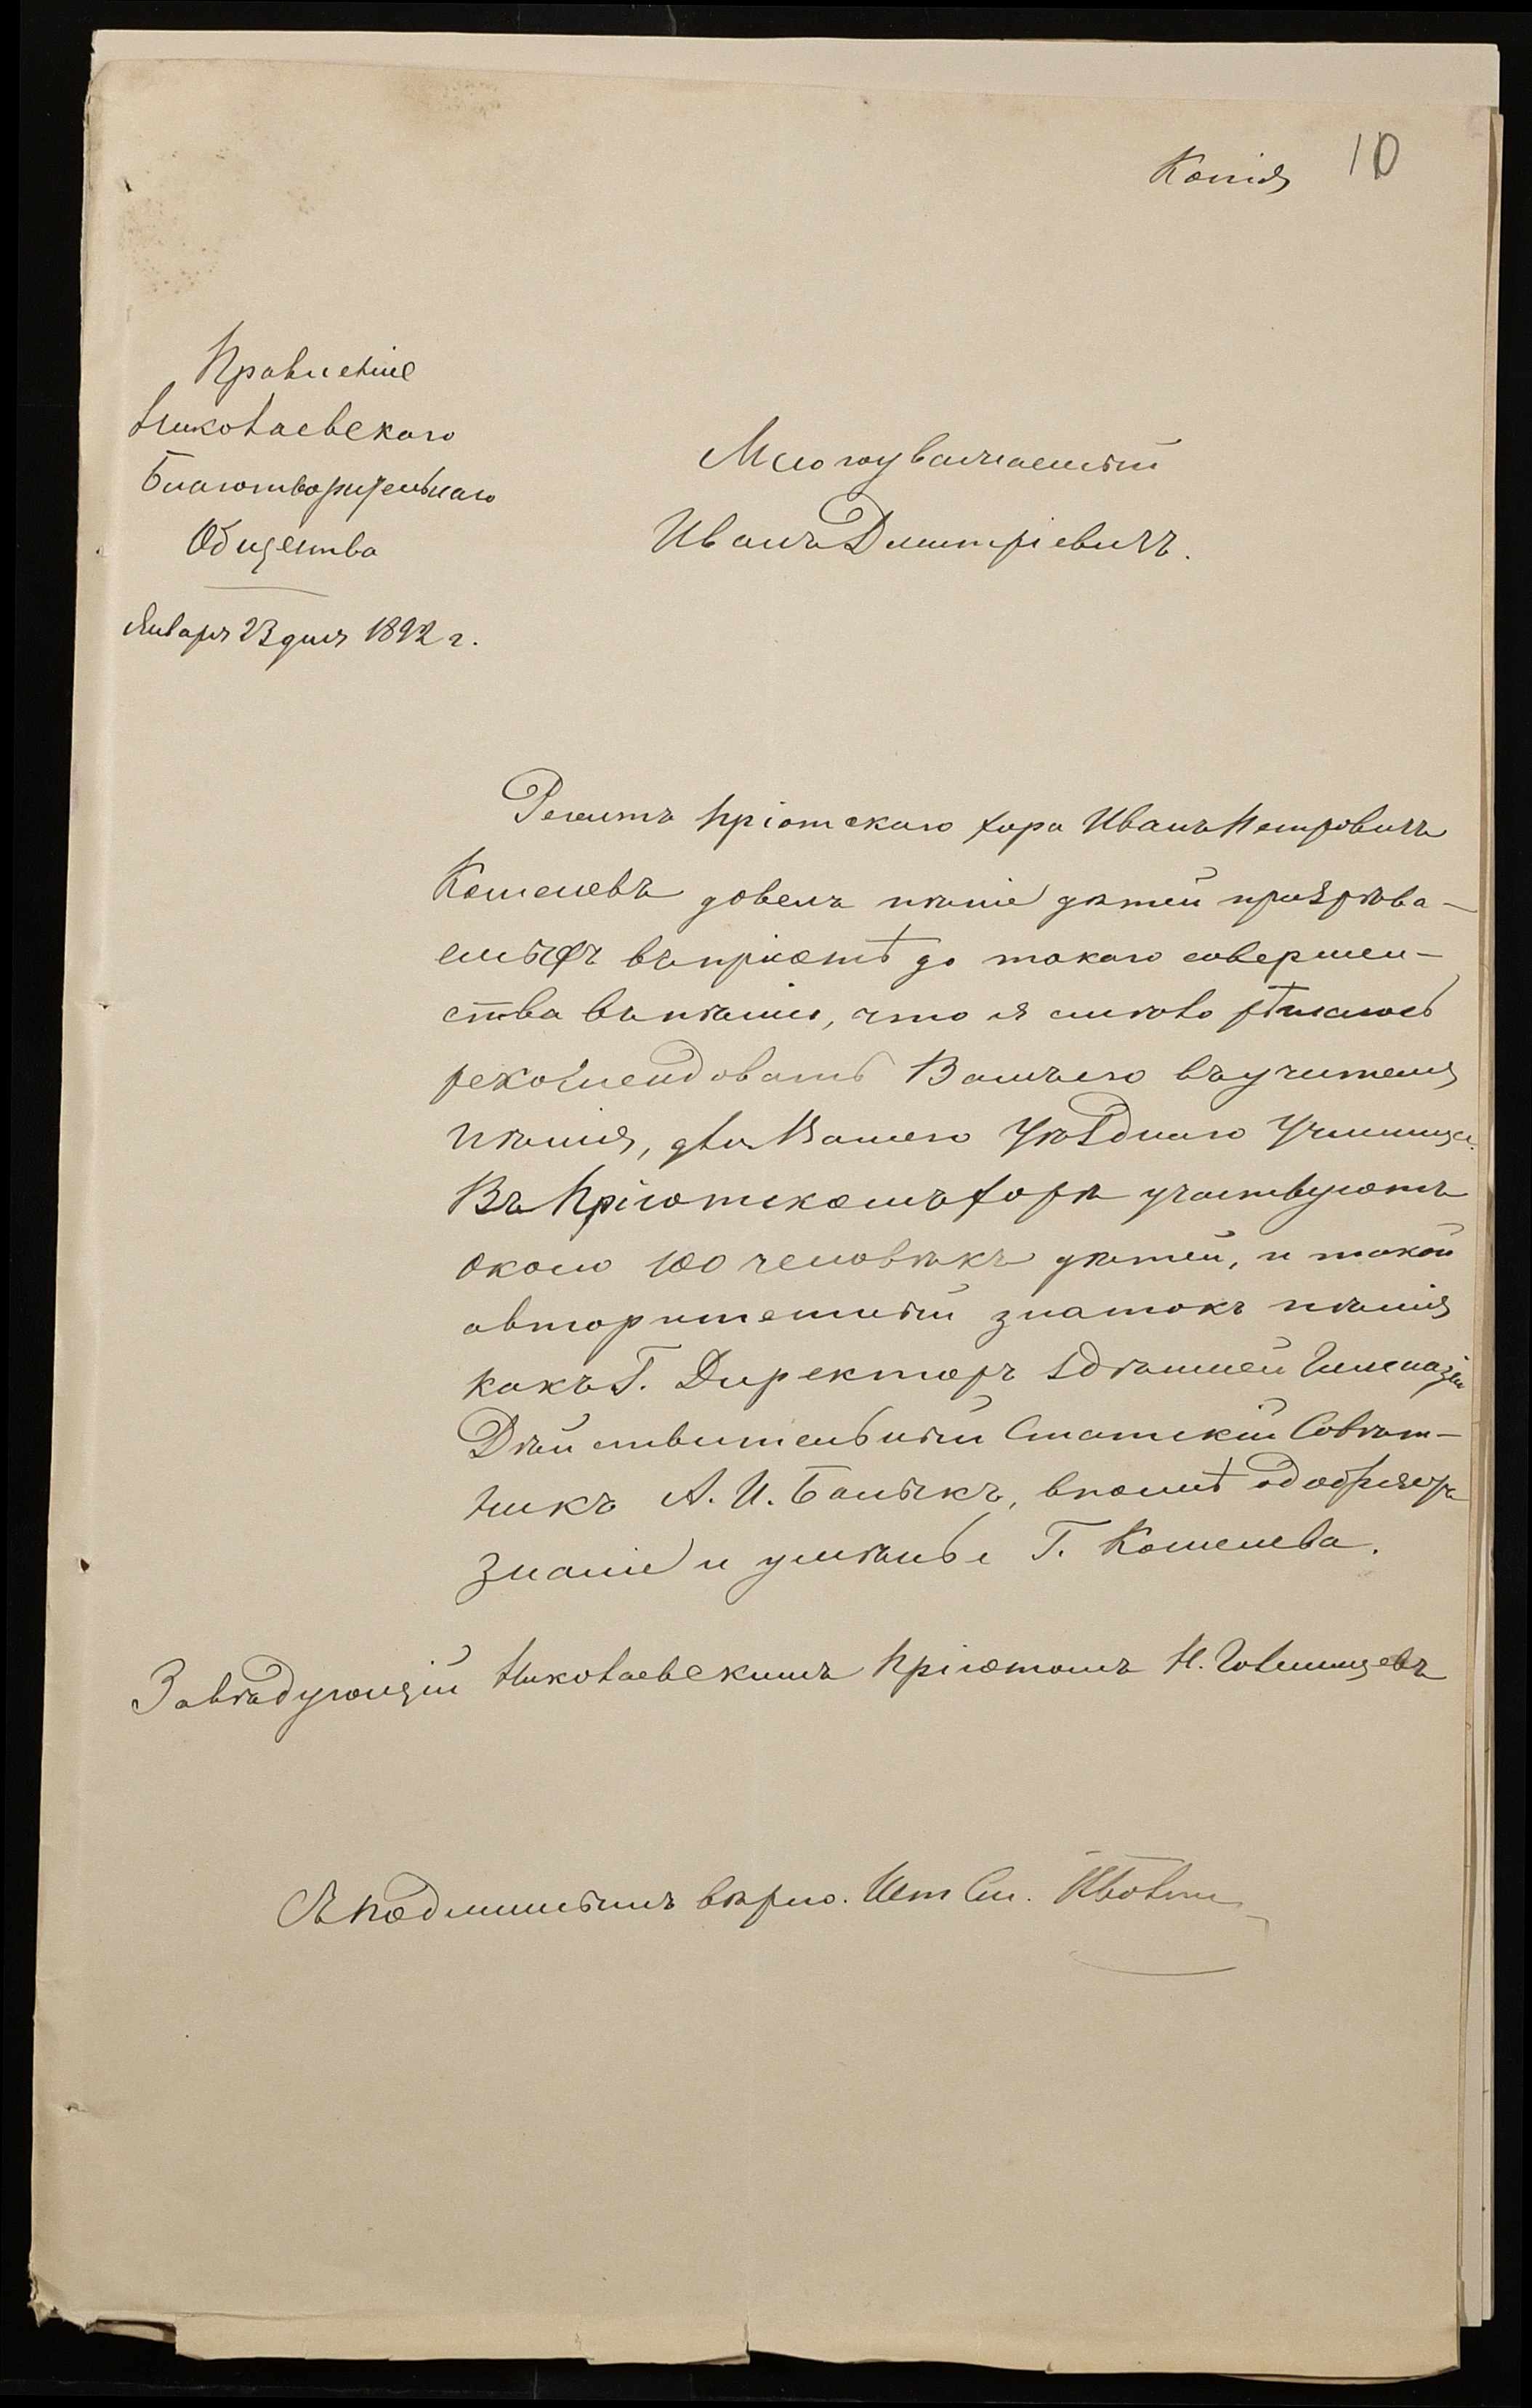 Копія 10
Правленіе
Николаевскаго
Благотворительнаго
Общества
Января 23 дня 1892 г.
Многоуважаемый
Иванъ Дмитріевичъ.
Регентъ Пріютскаго хора Иванъ Петровичъ
Кошелевъ довелъ пѣніе дѣтей призрѣва-
емыхъ въ пріютѣ до такого совершен-
ства въ пѣніи, что я смѣло рѣшаюсь
рекомендовать Вамъ его въ учителя
пѣнія, для Вашего Уѣзднаго Училища.
Въ Пріютскомъ хорѣ участвуютъ
около 100 человѣкъ дѣтей, и такой
авторитетный знатокъ пѣнія
какъ Г. Директоръ здѣшней Гимназіи
Дѣйствительный Статскій Совѣт-
никъ А. И. Балыкъ, вполнѣ одобряетъ
знаніе и умѣнье Г. Кошелева.
Завѣдующій Николаевскимъ Пріютомъ Н. Голенищевъ
Съ подлиннымъ вѣрно. Шт См.